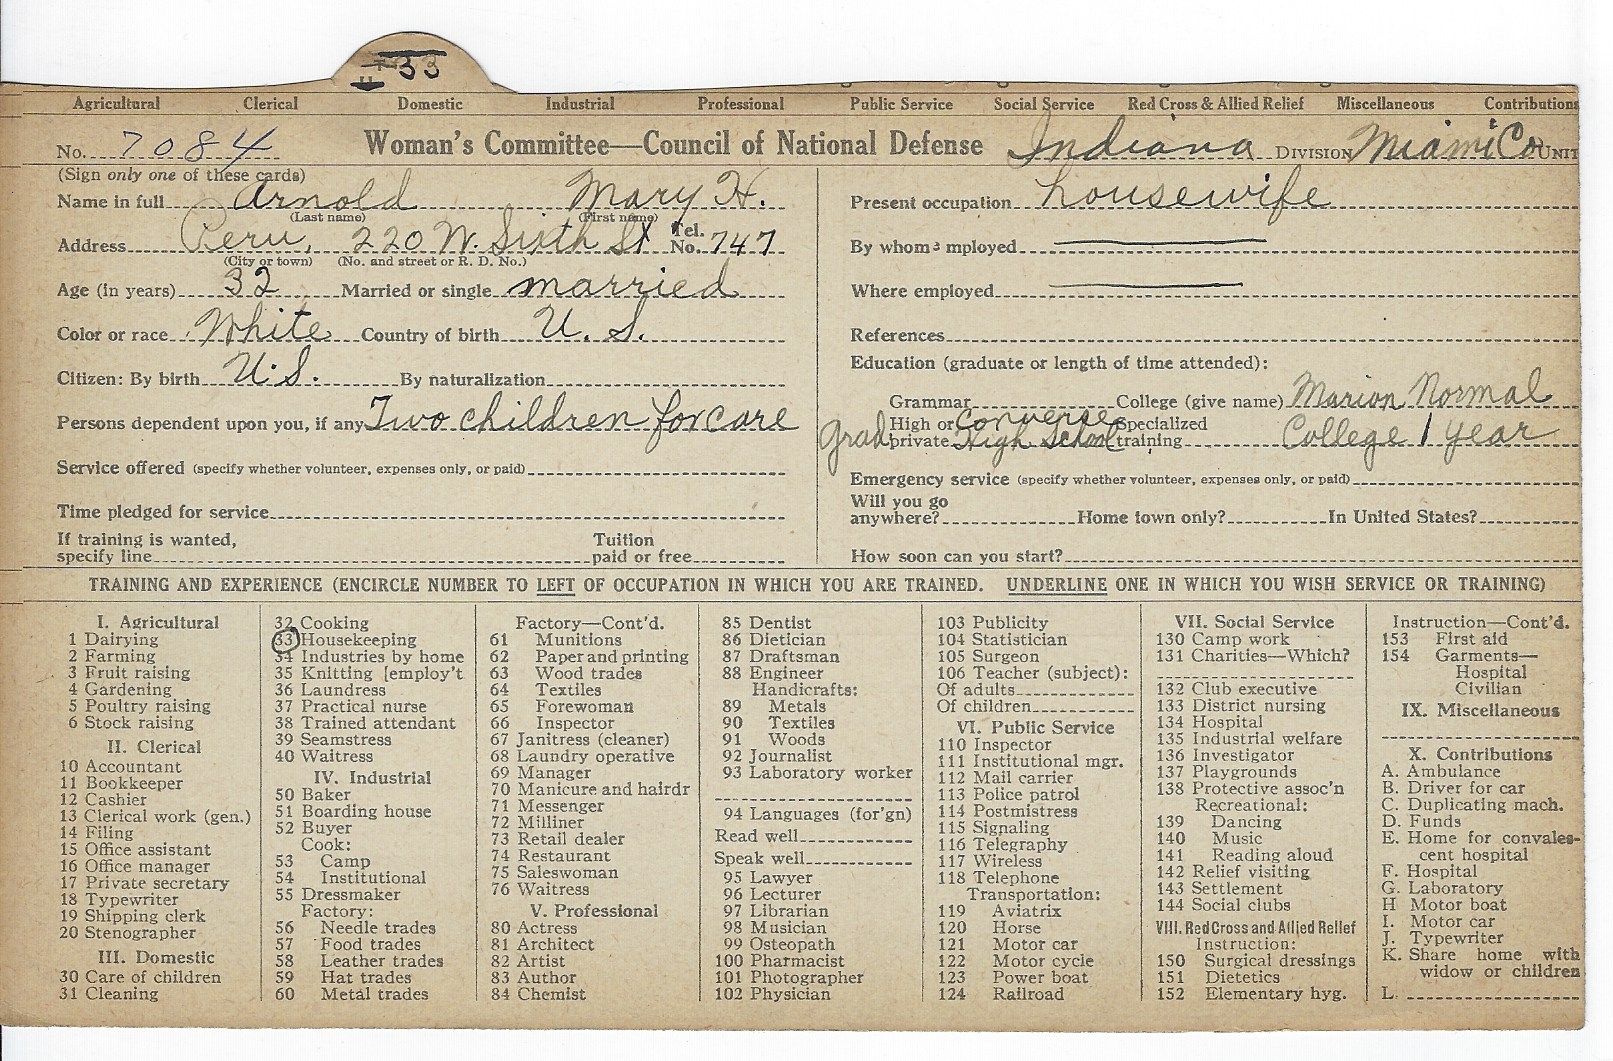 #33
Agricultural Clerical Domestic Industrial Professional Public Service Social Service Red Cross & Allied Relief Miscellaneous Contributions
No. 7084 Woman's Committee—Council of National Defense Indiana DIVISION Miami Co. UNIT
(Sign only one of these cards)
Name in full Arnold Mary H.
(Last name) (First name)
Address Peru, 220 W. Sixth St Tel. No. 747
(City or town) (No. and street or R. D. No.)
Age (in years) 32 Married or single married
Color or race White Country of birth U. S.
Citizen: By birth U.S. By naturalization
Persons dependent upon you, if any Two children for care
Service offered (specify whether volunteer, expenses only, or paid)
Time pledged for service
If training is wanted, specify line Tuition paid or free
Present occupation housewife
By whom employed
Where employed
References
Education (graduate or length of time attended):
Grammar College (give name) Marion Normal
Grad High or private Converse High School Specialized training College 1 year
Emergency service (specify whether volunteer, expenses only, or paid)
Will you go anywhere? Home town only? In United States?
How soon can you start?
TRAINING AND EXPERIENCE (ENCIRCLE NUMBER TO LEFT OF OCCUPATION IN WHICH YOU ARE TRAINED. UNDERLINE ONE IN WHICH YOU WISH SERVICE OR TRAINING)
I. Agricultural
1 Dairying
2 Farming
3 Fruit raising
4 Gardening
5 Poultry raising
6 Stock raising
II. Clerical
10 Accountant
11 Bookkeeper
12 Cashier
13 Clerical work (gen.)
14 Filing
15 Office assistant
16 Office manager
17 Private secretary
18 Typewriter
19 Shipping clerk
20 Stenographer
III. Domestic
30 Care of children
31 Cleaning
32 Cooking
33 Housekeeping
34 Industries by home
35 Knitting [employ't
36 Laundress
37 Practical nurse
38 Trained attendant
39 Seamstress
40 Waitress
IV. Industrial
50 Baker
51 Boarding house
52 Buyer
Cook:
53 Camp
54 Institutional
55 Dressmaker
Factory:
56 Needle trades
57 Food trades
58 Leather trades
59 Hat trades
60 Metal trades
Factory—Cont'd.
61 Munitions
62 Paper and printing
63 Wood trades
64 Textiles
65 Forewoman
66 Inspector
67 Janitress (cleaner)
68 Laundry operative
69 Manager
70 Manicure and hairdr
71 Messenger
72 Milliner
73 Retail dealer
74 Restaurant
75 Saleswoman
76 Waitress
V. Professional
80 Actress
81 Architect
82 Artist
83 Author
84 Chemist
85 Dentist
86 Dietician
87 Draftsman
88 Engineer
Handicrafts:
89 Metals
90 Textiles
91 Woods
92 Journalist
93 Laboratory worker
94 Languages (for'gn)
Read well
Speak well
95 Lawyer
96 Lecturer
97 Librarian
98 Musician
99 Osteopath
100 Pharmacist
101 Photographer
102 Physician
103 Publicity
104 Statistician
105 Surgeon
106 Teacher (subject):
Of adults
Of children
VI. Public Service
110 Inspector
111 Institutional mgr.
112 Mail carrier
113 Police patrol
114 Postmistress
115 Signaling
116 Telegraphy
117 Wireless
118 Telephone
Transportation:
119 Aviatrix
120 Horse
121 Motor car
122 Motor cycle
123 Power boat
124 Railroad
VII. Social Service
130 Camp work
131 Charities—Which?
132 Club executive
133 District nursing
134 Hospital
135 Industrial welfare
136 Investigator
137 Playgrounds
138 Protective assoc'n
Recreational:
139 Dancing
140 Music
141 Reading aloud
142 Relief visiting
143 Settlement
144 Social clubs
VIII. Red Cross and Allied Relief
Instruction:
150 Surgical dressings
151 Dietetics
152 Elementary hyg.
Instruction—Cont'd.
153 First aid
154 Garments—
Hospital
Civilian
IX. Miscellaneous
X. Contributions
A. Ambulance
B. Driver for car
C. Duplicating mach.
D. Funds
E. Home for convales-
cent hospital
F. Hospital
G. Laboratory
H Motor boat
I. Motor car
J. Typewriter
K. Share home with
widow or children
L.